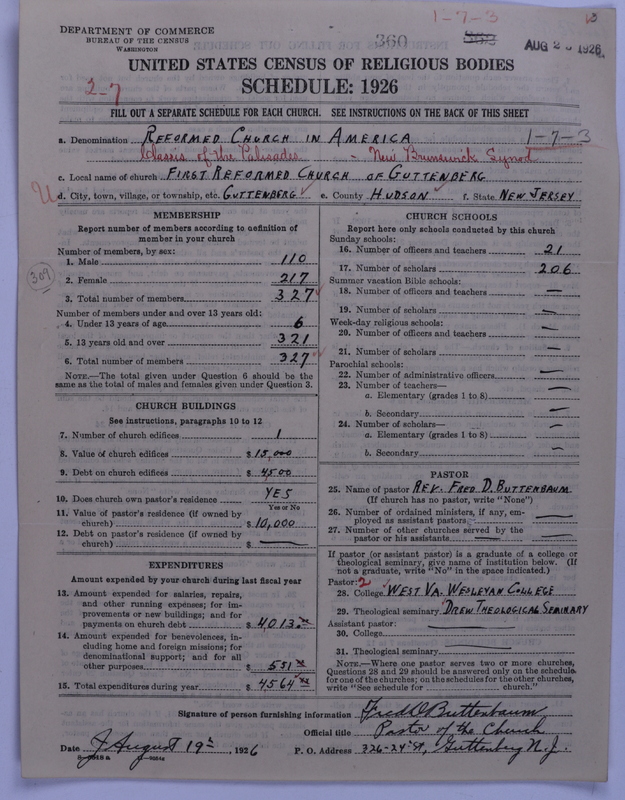 1-7-3
DEPARTMENT OF COMMERCE
BUREAU OF THE CENSUS
WASHINGTON
360
AUG 2 1926
UNITED STATES CENSUS OF RELIGIOUS BODIES
2-7
SCHEDULE: 1926
FILL OUT A SEPARATE SCHEDULE FOR EACH CHURCH. SEE INSTRUCTIONS ON THE BACK OF THIS SHEET
a. Denomination REFORMED CHURCH IN AMERICA 1-7-3
Classis of the Palisades - New Brunswick Synod
c. Local name of church FIRST REFORMED CHURCH OF GUTTENBERG
U d. City, town, village, or township, etc. GUTTENBERG e. County HUDSON f. State NEW JERSEY
MEMBERSHIP
Report number of members according to definition of
member in your church
Number of members, by sex:
1. Male 110
309
2. Female 217
3. Total number of members 327
Number of members under and over 13 years old:
4. Under 13 years of age 6
5. 13 years old and over 321
6. Total number of members 327
NOTE.—The total given under Question 6 should be the
same as the total of males and females given under Question 3.
CHURCH BUILDINGS
See instructions, paragraphs 10 to 12
7. Number of church edifices 1
8. Value of church edifices $ 15,000
9. Debt on church edifices $ 4500
10. Does church own pastor's residence YES
Yes or No
11. Value of pastor's residence (if owned by
church) $ 10,000
12. Debt on pastor's residence (if owned by
church) $ —
EXPENDITURES
Amount expended by your church during last fiscal year
13. Amount expended for salaries, repairs,
and other running expenses; for im-
provements or new buildings; and for
payments on church debt $ 4,013
14. Amount expended for benevolences, in-
cluding home and foreign missions; for
denominational support; and for all
other purposes $ 551
15. Total expenditures during year $ 4564
CHURCH SCHOOLS
Report here only schools conducted by this church
Sunday schools:
16. Number of officers and teachers 21
17. Number of scholars 206
Summer vacation Bible schools:
18. Number of officers and teachers —
19. Number of scholars —
Week-day religious schools:
20. Number of officers and teachers —
21. Number of scholars —
Parochial schools:
22. Number of administrative officers —
23. Number of teachers—
a. Elementary (grades 1 to 8) —
b. Secondary —
24. Number of scholars—
a. Elementary (grades 1 to 8) —
b. Secondary —
PASTOR
25. Name of pastor REV. FRED D. BUTTENBAUM
(If church has no pastor, write "None")
26. Number of ordained ministers, if any, em-
ployed as assistant pastors —
27. Number of other churches served by the
pastor or his assistants —
If pastor (or assistant pastor) is a graduate of a college or
theological seminary, give name of institution below. (If
not a graduate, write "No" in the space indicated.)
Pastor: 2
28. College WEST VA. WESLEYAN COLLEGE
29. Theological seminary DREW THEOLOGICAL SEMINARY
Assistant pastor: —
30. College —
31. Theological seminary —
NOTE.—Where one pastor serves two or more churches,
Questions 28 and 29 should be answered only on the schedule
for one of the churches; on the schedules for the other churches,
write "See schedule for church."
Signature of person furnishing information Fred D Buttenbaum
Official title Pastor of the Church
Date August 19th, 1926 P. O. Address 326-24th St, Guttenberg N.J.